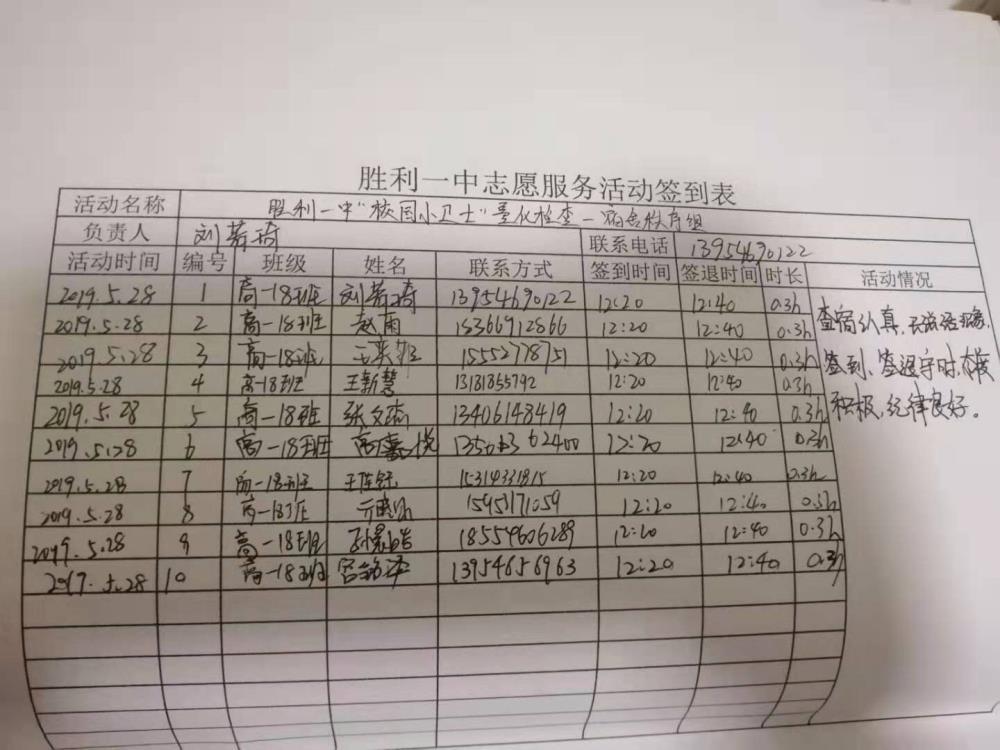 胜利一中志愿服务活动签到表
活动名称 胜利一中"校园小卫士"量化检查—宿舍秩序组
负责人 刘若琦 联系电话 13954690122
活动时间 编号 班级 姓名 联系方式 签到时间 签退时间 时长 活动情况
2019.5.28 1 高一18班 刘若琦 13954690122 12:20 12:40 0.3h
2019.5.28 2 高一18班 赵雨 15366912866 12:20 12:40 0.3h
2019.5.28 3 高一18班 15552778751 12:20 12:40 0.3h
2019.5.28 4 高一18班 王新慧 13181855792 12:20 12:40 0.3h
2019.5.28 5 高一18班 张文瑜 13406148419 12:20 12:40 0.3h
2019.5.28 6 高一18班 12:20 12:40 0.3h
2019.5.28 7 高一18班 15314331815 12:20 12:40 0.3h
2019.5.28 8 高一18班 12:20 12:40 0.3h
2019.5.28 9 高一18班 18554606289 12:20 12:40 0.3h
2019.5.28 10 高一18班 13954656963 12:20 12:40 0.3h
查宿认真,
签到、签退守时,
积极,纪律良好。